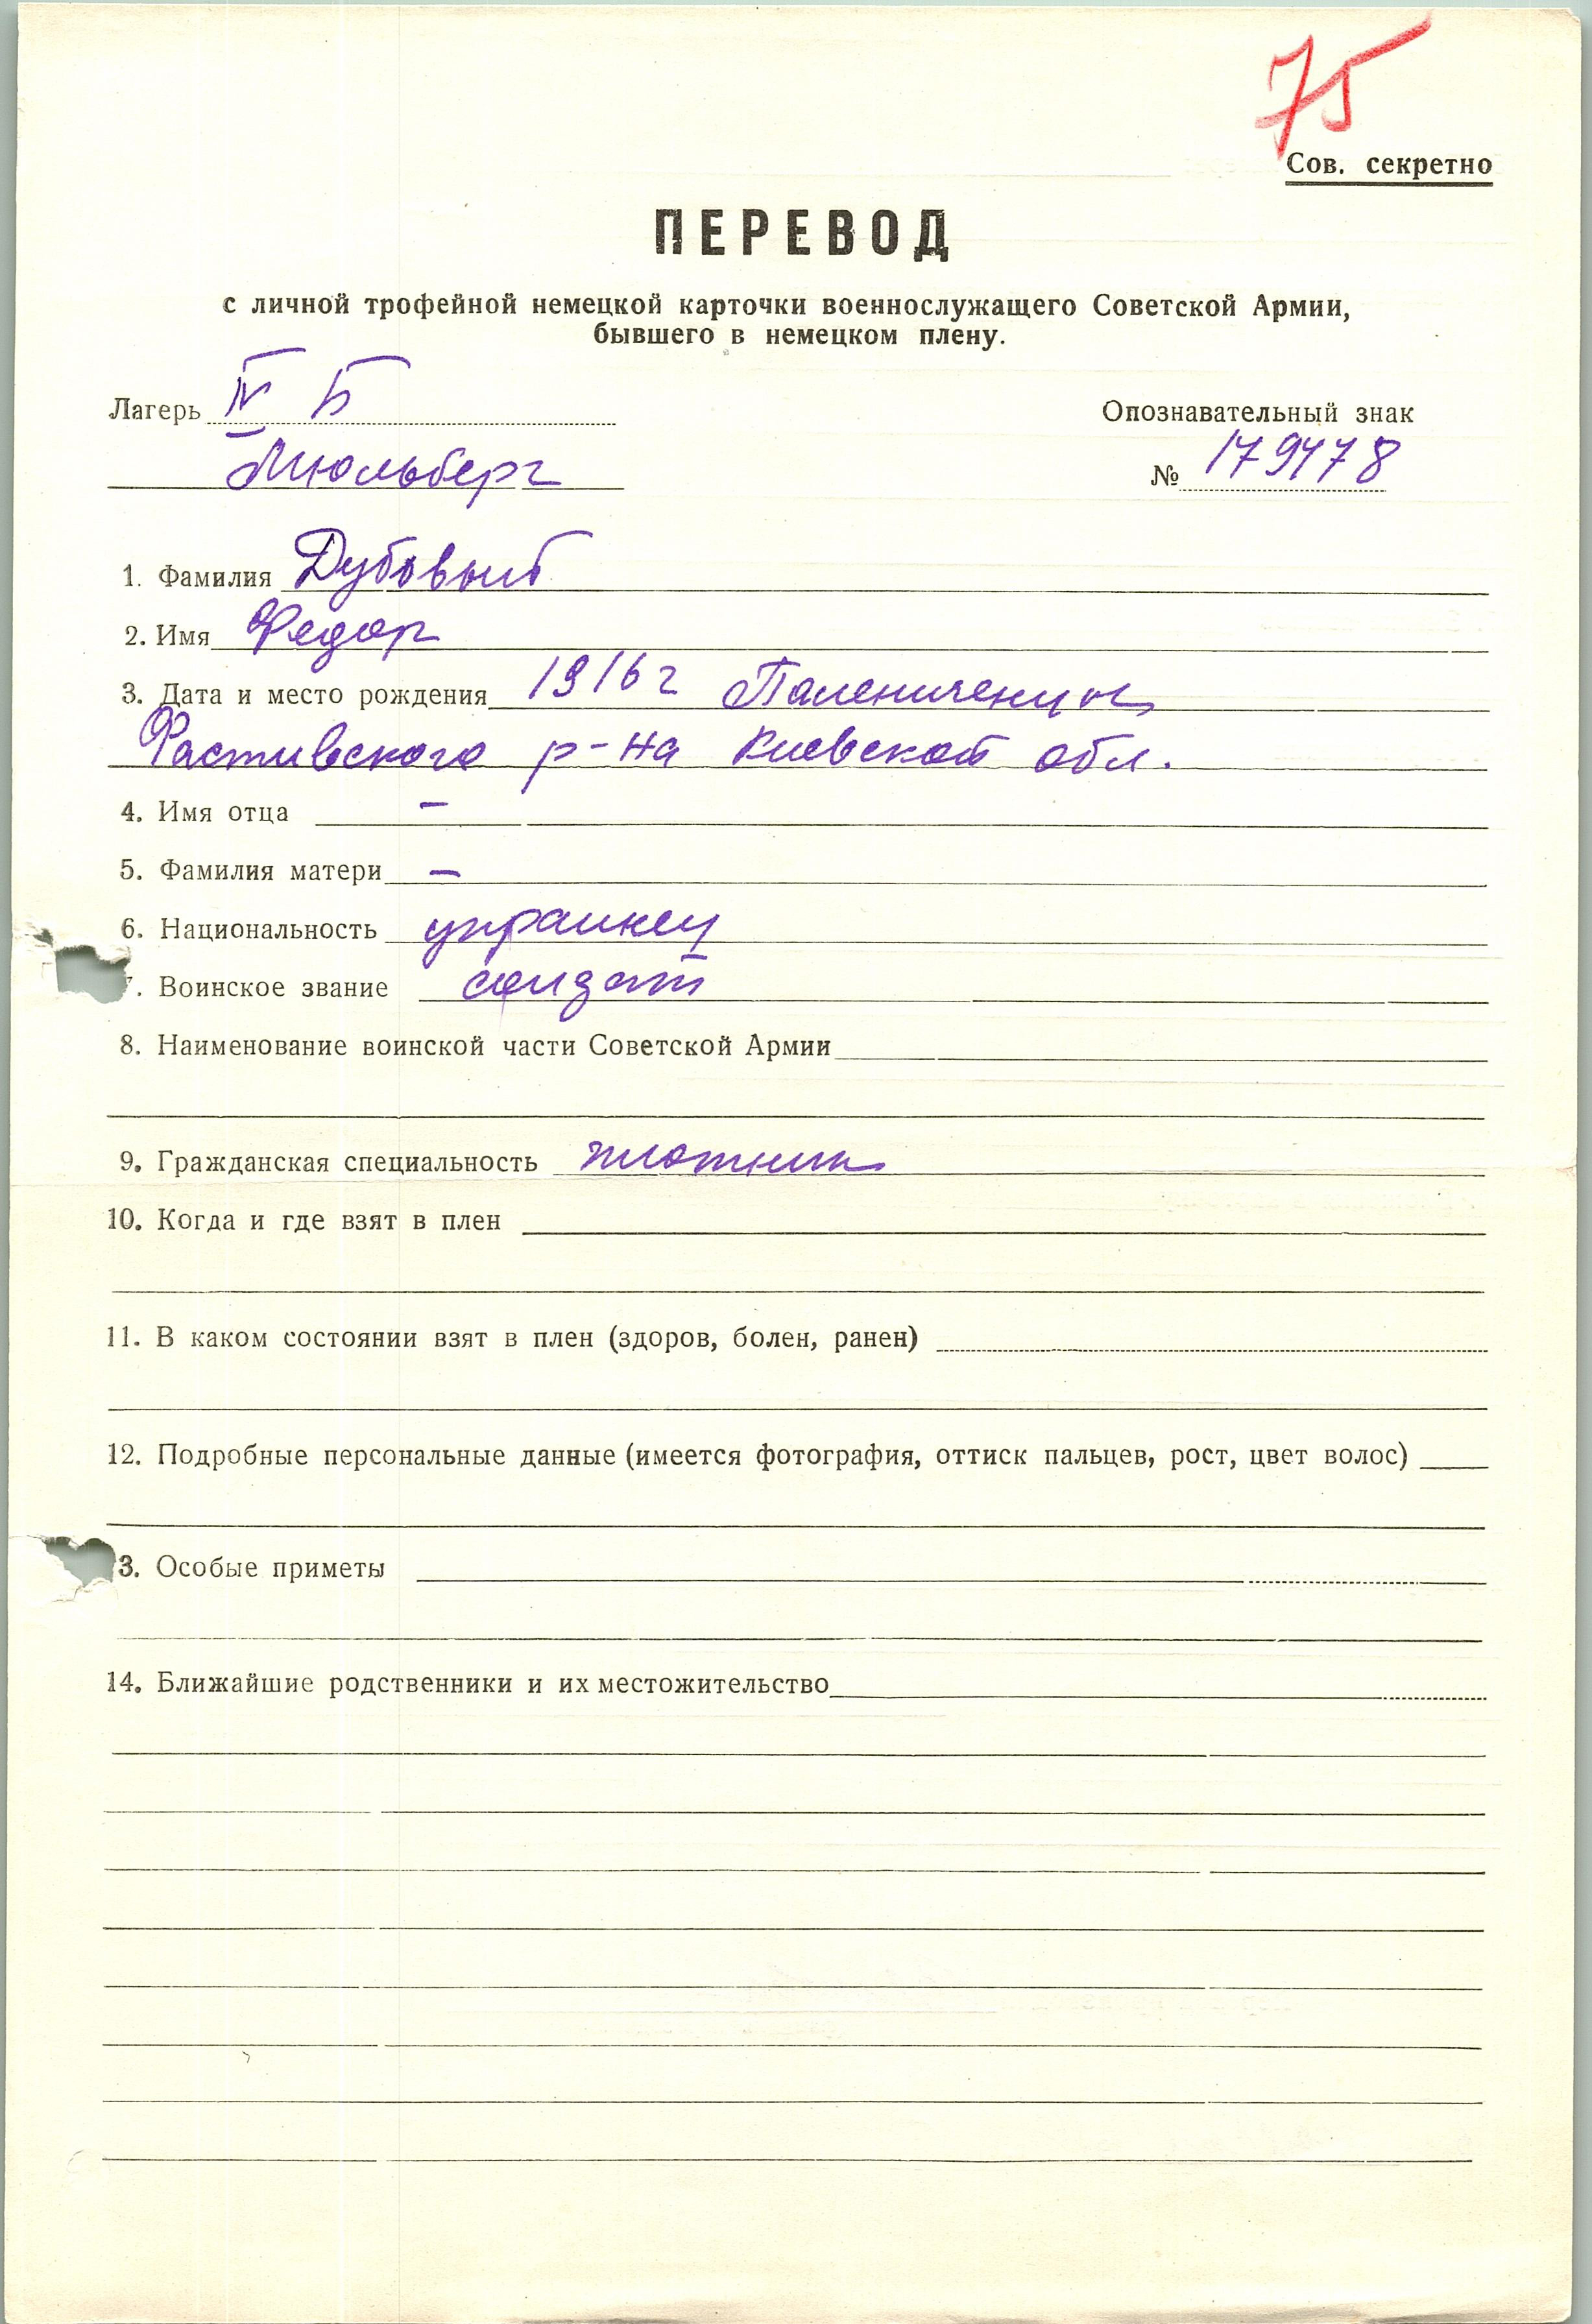 75
Сов. секретно
ПЕРЕВОД
с личной трофейной немецкой карточки военнослужащего Советской Армии,
бывшего в немецком плену.
Лагерь IV Б
Опознавательный знак
Мюльберг
№ 179478
1. Фамилия Дубовый
2. Имя Федор
3. Дата и место рождения 1916 г Паленичены
Фастивского р-на Киевской обл.
4. Имя отца –
5. Фамилия матери –
6. Национальность украинец
. Воинское звание солдат
8. Наименование воинской части Советской Армии
9. Гражданская специальность плотник
10. Когда и где взят в плен
11. В каком состоянии взят в плен (здоров, болен, ранен)
12. Подробные персональные данные (имеется фотография, оттиск пальцев, рост, цвет волос)
3. Особые приметы
14. Ближайшие родственники и их местожительство